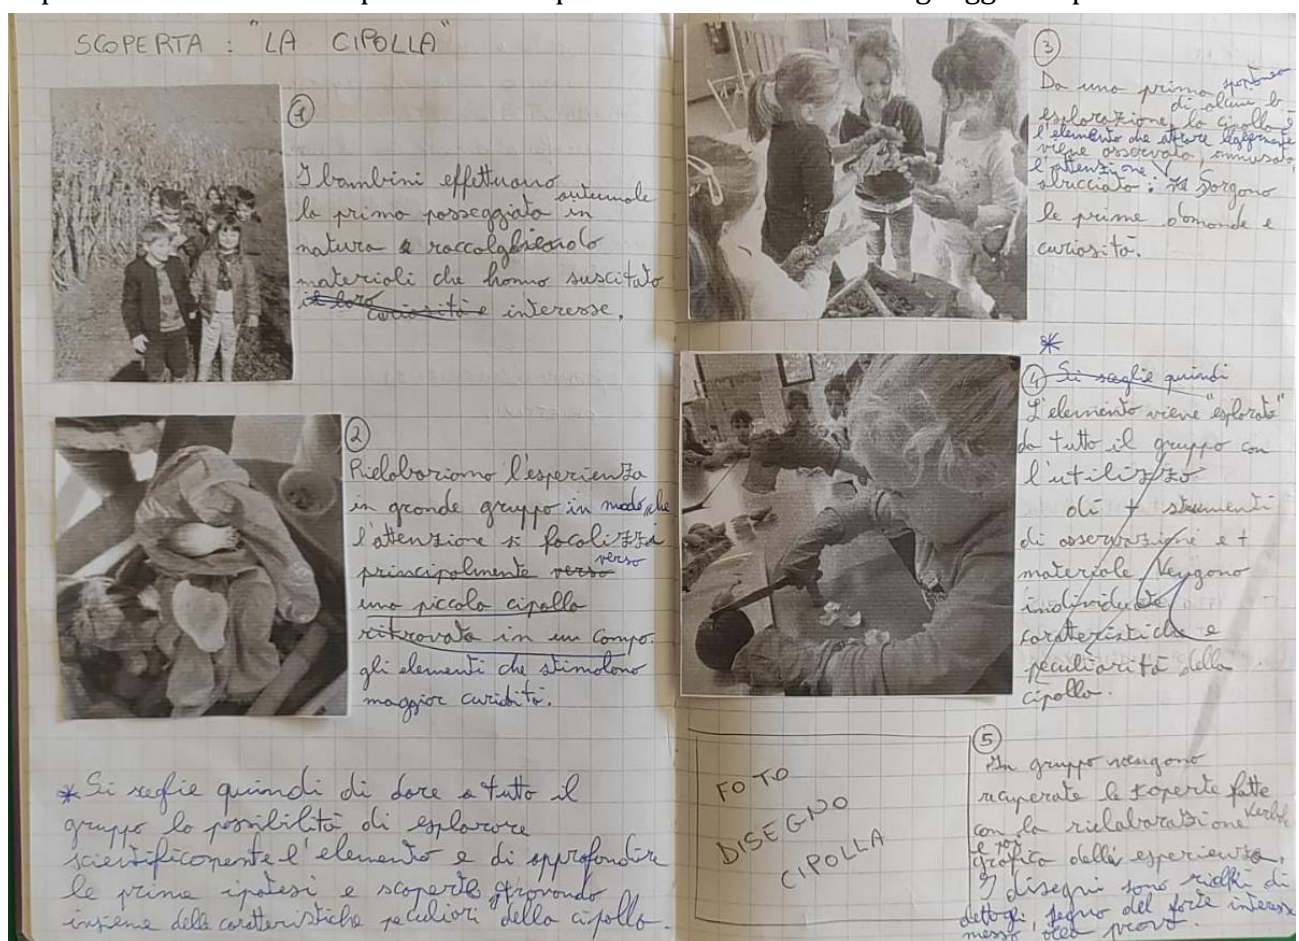 SCOPERTA : "LA CIPOLLA"
1
I bambini effettuano
autunnale
la prima passeggiata in
natura e raccolgono
materiali che hanno suscitato
il loro curiosità e interesse.
2
Rielaboriamo l'esperienza
in grande gruppo in modo che
l'attenzione si focalizzi
principalmente verso verso
una piccola cipolla
ritrovata in un campo.
gli elementi che stimolano
maggior curiosità.
* Si sceglie quindi di dare a tutto il
gruppo la possibilità di esplorare
scientificamente l'elemento e di approfondire
le prime ipotesi e scoperte, trovando
insieme delle caratteristiche peculiari della cipolla.
3
Da una prima spontanea
di alcuni b
esplorazione la cipolla è
l'elemento che attrae
viene osservata, annusata,
l'attenzione
sbucciata : Sorgono
le prime domande e
curiosità.
*
4 Si sceglie quindi
L'elemento viene "esplorato"
da tutto il gruppo con
l'utilizzo
di + strumenti
di osservazioni e +
materiale Vengono
individuate
caratteristiche e
peculiarità della
cipolla.
FOTO
DISEGNO
CIPOLLA
5
In gruppo vengono
recuperate le scoperte fatte
con la rielaborazione verbale
e
grafica dell'esperienza.
I disegni sono ricchi di
dettagli, segno del forte interesse
messo